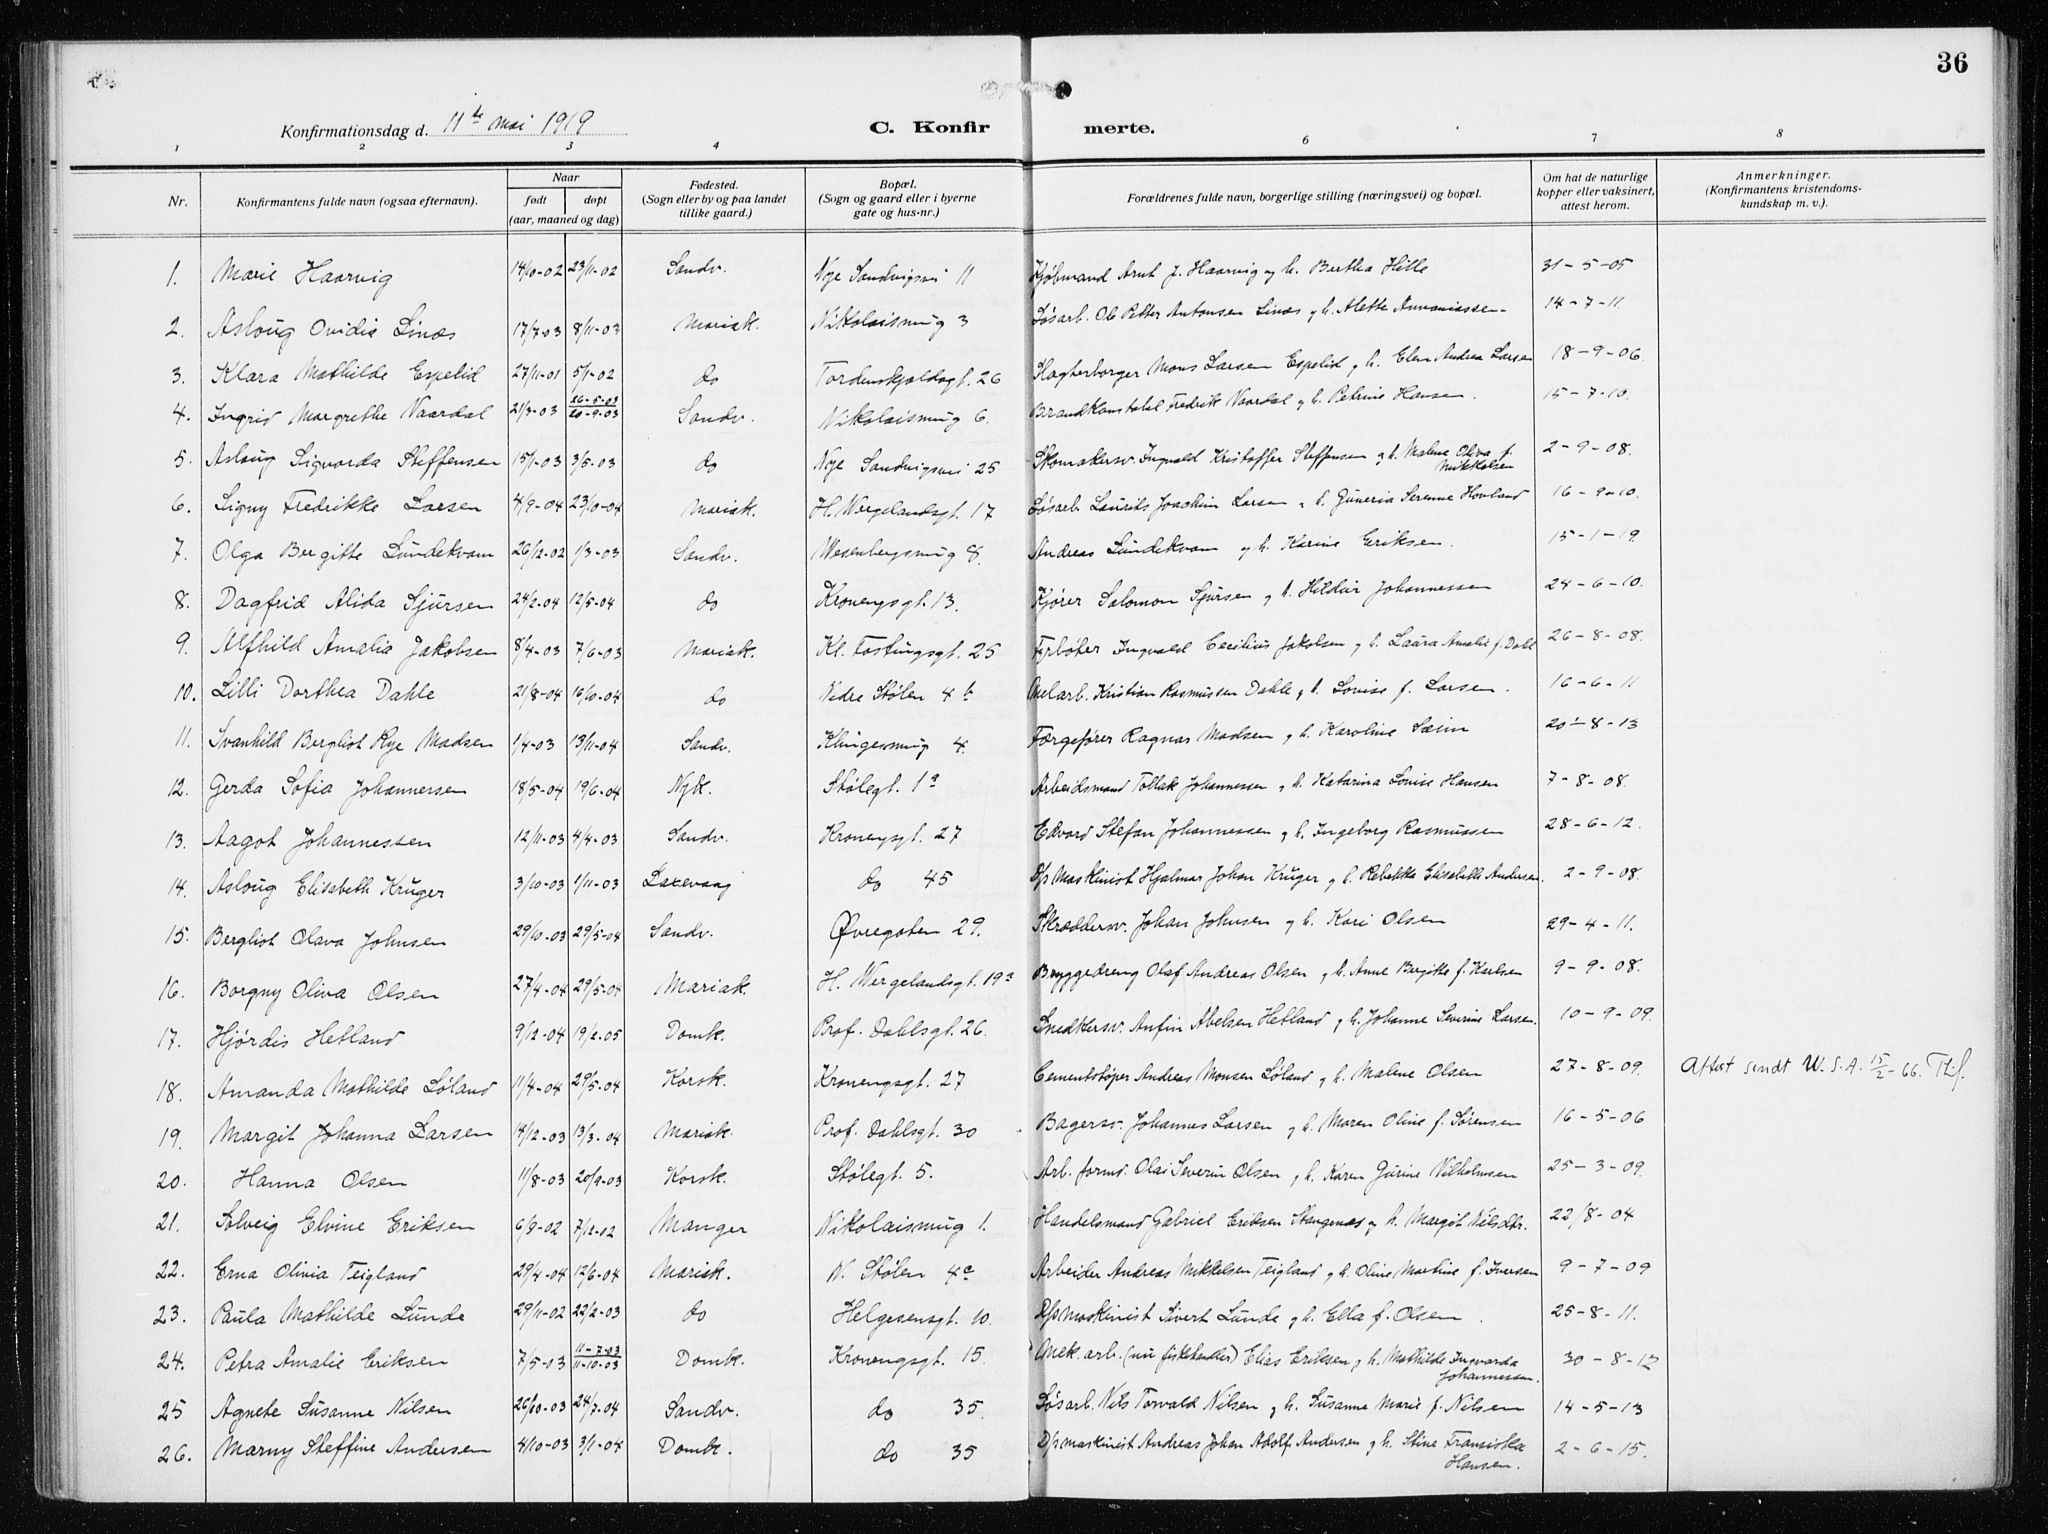 36
Konfirmationsdag d. 11te mai 1919
C. Konfir merte.
1 2 3 4 6 7 8
Nr. Konfirmantens fulde navn (ogsaa efternavn). Naar født døpt (aar, maaned og dag) Fødested. (Sogn eller by og paa landet tillike gaard.) Bopæl. (Sogn og gaard eller i byerne gate og hus-nr.) Forældrenes fulde navn, borgerlige stilling (næringsvei) og bopæl. Om hat de naturlige kopper eller vaksinert, attest herom. Anmerkninger. (Konfirmantens kristendomskundskap m. v.).
1. Marie Haarvig 14/10-02 23/11-02 Sandv. Nye Sandvigsvei 11 Kjøbmand Arnt J. Haarvig og h. Bertha Hille 31-5-05
2. Aslaug Ovidia Linæs 17/7-03 8/11-03 Mariak. Nikolaismug 3 Løsarb. Ole Petter Antonsen Linæs og h. Alette Ananiassen 14-7-11
3. Klara Mathilde Espelid 27/11-01 5/1-02 do Tordenskjoldsgt. 26 Slagterborger Mons Larsen Espelid og h. Elen Andrea Larsen 18-9-06.
4. Ingrid Margrethe Naardal 21/3-03 26-5-03 20-9-03 Sandv. Nikolaismug 6. Brandkonstabel Fredrik Naardal og h. Petrine Hansen. 15-7-10.
5. Aslaug Sigvarda Steffensen 15/1-03 3/5-03 do Nye Sandvigsvei 25 Skomakersv. Ingvald Kristoffer Steffensen og h. Malene Oliva f. Mikkelsen 2-9-08.
6. Signy Fredrikke Larsen 4/9-04 23/10-04 Mariak. H. Wergelandsgt. 17 Løsarb. Laurits Joachim Larsen og h. Guneria Serenne Hovland 16-9-10.
7. Olga Bergitte Lundekvam 26/12-02 1/3-03 Sandv. Wesenbergsmug 8. Andreas Lundekvam og h. Karine Eriksen. 15-1-19.
8. Dagfrid Alida Sjursen 24/2-04 12/5-04 do Kronengsgt. 13. Kjører Salomon Sjursen og h. Hildur Johannessen 24-6-10.
9. Alfhild Amalia Jakobsen 8/4-03 7/6-03 Mariak. Kl. Fostingsgt. 25 Fyrbøter Ingvald Cecilius Jakobsen og h. Laura Amalie f. Dahl 26-8-08.
10. Lilli Dorthea Dahle 21/8-04 16/10-04 do Nedre Stølen 4b Mekarb. Kristian Rasmussen Dahle og h. Lovise f. Larsen. 16-6-11
11. Svanhild Bergliot Rye Madsen 1/4-03 13/11-04 Sandv. Klingesmug 4. Færgefører Ragnas Madsen og h. Karoline Sæim 20-8-13
12. Gerda Sofia Johannessen 18/5-04 19/6-04 Nyk. Stølegt. 1a Arbeidsmand Tollak Johannessen og h. Katarina Lovise Hansen 7-8-08.
13. Aagot Johannessen 12/11-03 4/4-03 Sandv. Kronengsgt. 27 Edvard Stefan Johannessen og h. Ingeborg Rasmussen 28-6-12.
14. Aslaug Elisabeth Kruger 3/10-03 1/11-03 Laxevaag do 45 D/s Maskinist Hjalmar Johan Kruger og h. Rebekka Elisabeth Andersen. 2-9-08.
15. Bergliot Olava Johnsen 29/10-03 29/5-04 Sandv. Øvregaten 29. Skræddersv. Johan Johnsen og h. Kari Olsen 29-4-11.
16. Borgny Oliva Olsen 27/4-04 29/5-04 Mariak. H. Wergelandsgt. 19a Bryggedreng Olaf Andreas Olsen og h. Anne Bergitte f. Karlsen 9-9-08.
17. Hjørdis Hetland 9/12-04 19/2-05 Domk. Prof. Dahlsgt. 26. Snedkersv. Anfin Abelsen Hetland og h. Johanne Severine Larsen. 10-9-09.
18. Amanda Mathilde Løland 11/4-04 29/5-04 Korsk. Kronengsgt. 27 Cementstøper Andreas Monsen Løland og h. Malene Olsen 27-8-09. Attest sendt W.S.A. 15/2-66.
19. Margit Johanna Larsen 14/12-03 13/3-04 Mariak. Prof. Dahlsgt. 30 Bagersv. Johannes Larsen og h. Maren Oline f. Sørensen 16-5-06
20. Hanna Olsen 11/8-03 20/9-03 Korsk. Stølegt. 5. Arb. formd. Olai Severin Olsen og h. Karen Gurine Vilhelmsen 25-3-09.
21. Solveig Elvine Eriksen 6/9-02 7/12-02 Manger Nikolaismug 1. Handelsmand Gabriel Eriksen Stangenæs og h. Margit Nilsdtr. 22/8-04
22. Erna Olivia Teigland 29/4-04 12/6-04 Mariak. N. Stølen 4c Arbeider Andreas Mikkelsen Teigland og h. Oline Martine f. Iversen 9-7-09
23. Paula Mathilde Lunde 29/11-02 22/2-03 do Helgesensgt. 10. D/s maskinist Sivert Lunde og h. Ella f. Olsen. 25-8-11.
24. Petra Amalie Eriksen 7/5-03 11-7-03 11-10-03 Domk. Kronengsgt. 15. Mek. arb. (nu fiskehandler) Elias Eriksen og h. Mathilde Ingvarda Johannessen. 30-8-12
25 Agnete Susanne Nilsen 26/10-03 24/7-04 Sandv. do 35. Løsarb. Nils Torvald Nilsen og h. Susanne Marie f. Nilsen 14-5-13
26. Marny Steffine Andersen 4/10-03 3/1-04 Domk. do 35 D/s maskinist Andreas Johan Adolf Andersen og h. Stine Fransiska Hansen. 2-6-15.